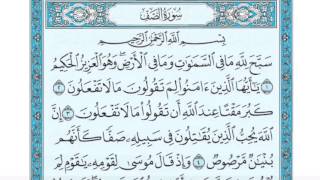 سُورَةُ الصَّفِّ
بِسْمِ اللَّهِ الرَّحْمَٰنِ الرَّحِيمِ
سَبَّحَ لِلَّهِ مَا فِي السَّمَٰوَٰتِ وَمَا فِي الْأَرْضِ وَهُوَ الْعَزِيزُ الْحَكِيمُ
١ يَٰأَيُّهَا الَّذِينَ ءَامَنُوا لِمَ تَقُولُونَ مَا لَا تَفْعَلُونَ ٢
كَبُرَ مَقْتًا عِندَ اللَّهِ أَن تَقُولُوا مَا لَا تَفْعَلُونَ ٣ إِنَّ
اللَّهَ يُحِبُّ الَّذِينَ يُقَٰتِلُونَ فِي سَبِيلِهِ صَفًّا كَأَنَّهُم
بُنْيَٰنٌ مَّرْصُوصٌ ٤ وَإِذْ قَالَ مُوسَىٰ لِقَوْمِهِ يَٰقَوْمِ لِمَ